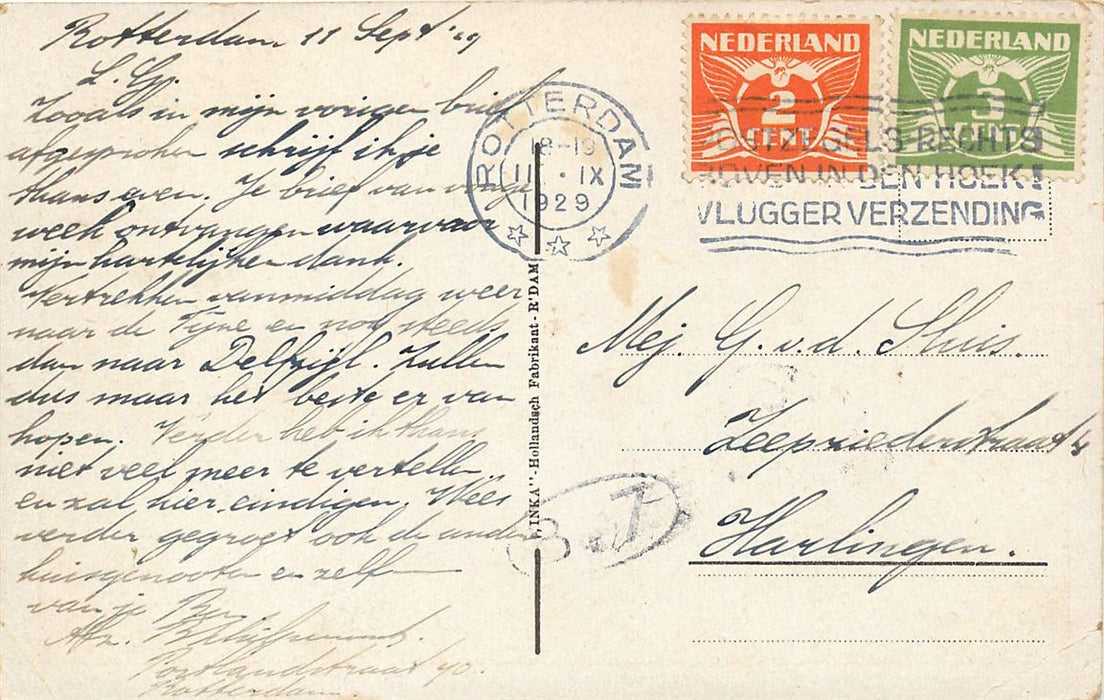 Rotterdam 11 Sept '29
L. Gr.
Zooals in mijn vorigen brief
afgesproken schrijf ik je
thans even. Je brief van vorige
week ontvangen waarvoor
mijn hartelijken dank.
Vertrekken vanmiddag weer
naar de Tyne en nog steeds
dan naar Delfzijl. Zullen
dus maar het beste er van
hopen. Verder heb ik thans
niet veel meer te vertellen
en zal hier eindigen. Wees
verder gegroet ook de andere
huisgenooten en zelf
van je Ben
Afz.
Portlandstraat 40.
Rotterdam
"INKA"-Hollandsch Fabrikaat - R'DAM
ROTTERDAM
18-19
11 · IX
1929
NEDERLAND
2
CENT
NEDERLAND
3
CENT
POSTZEGELS RECHTS
BOVEN IN DEN HOEK!
VLUGGER VERZENDING
Mej. G. v. d. Sluis.
Harlingen.